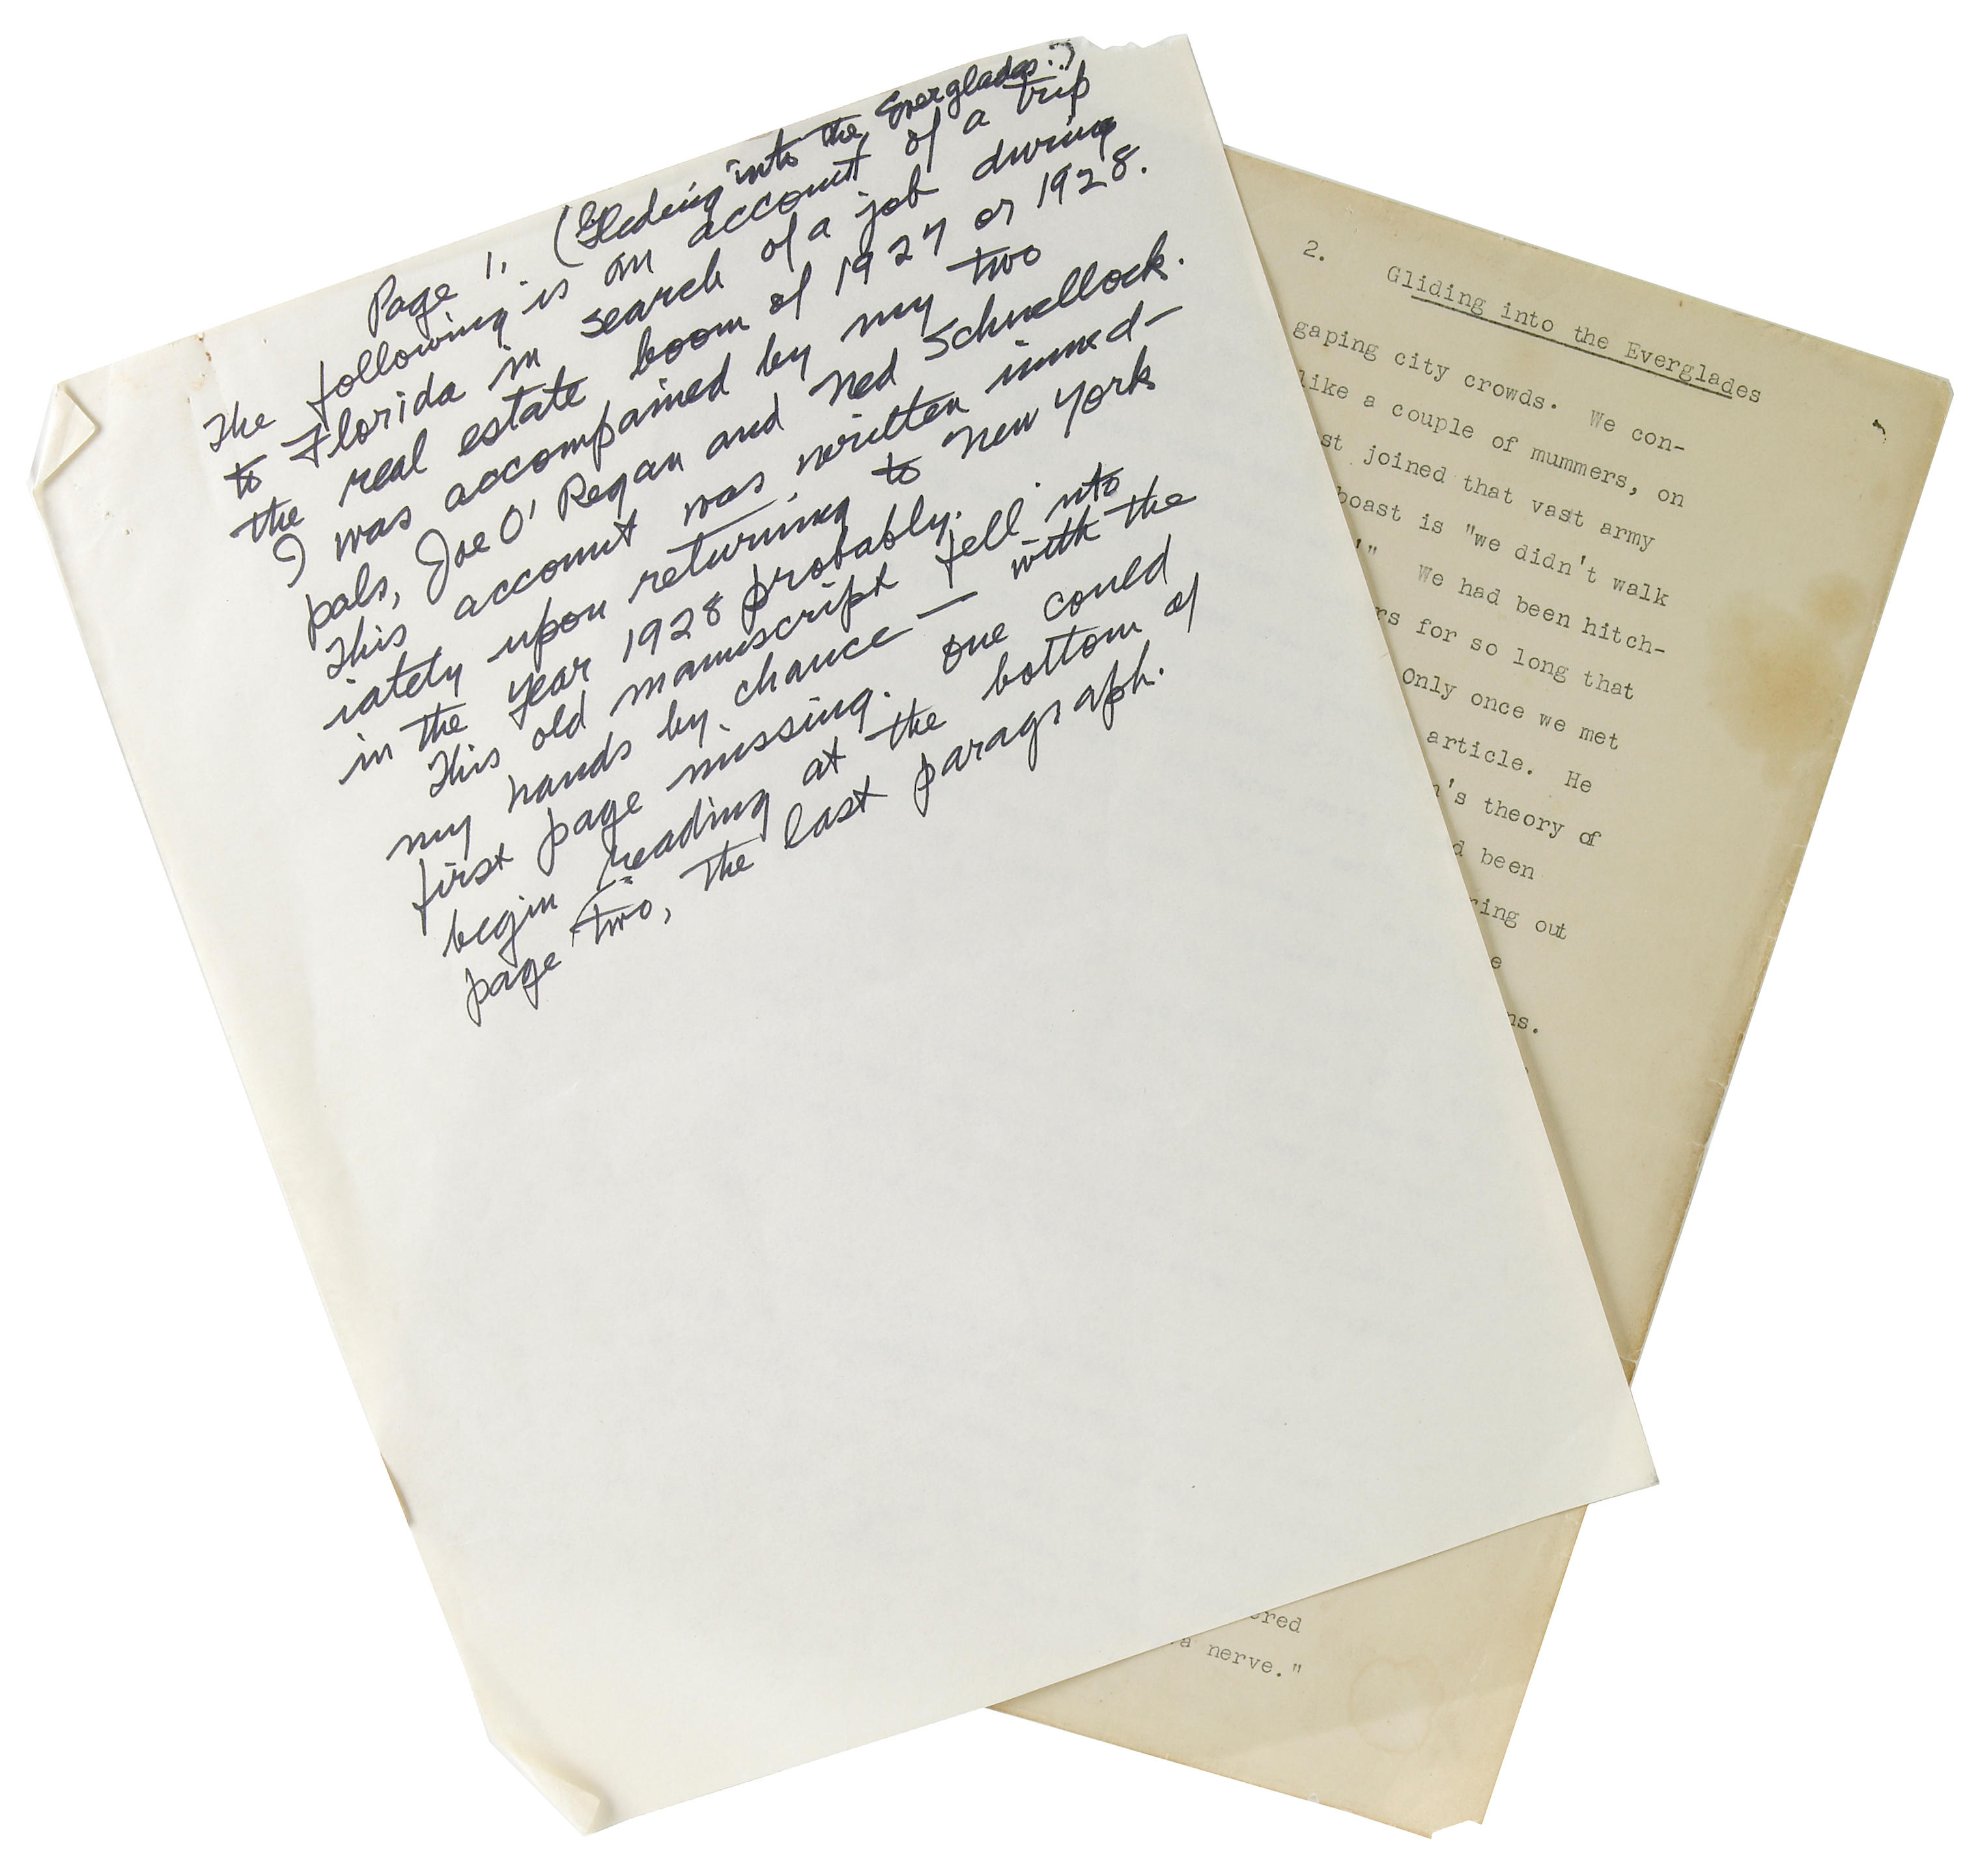 Page 1. (Gliding into the Everglades.)
The following is an account of a trip
to Florida in search of a job during
the real estate boom of 1927 or 1928.
I was accompained by my two
pals, Joe O'Regan and Ned Schnellock.
This account was written immed-
iately upon returning to New York
in the year 1928 probably.
This old manuscript fell into
my hands by chance — with the
first page missing. One could
begin reading at the bottom of
page two, the last paragraph.
2. Gliding into the Everglades
gaping city crowds. We con-
like a couple of mummers, on
st joined that vast army
boast is "we didn't walk
'"
We had been hitch-
rs for so long that
Only once we met
article. He
n's theory of
d been
ring out
e
ns.
ered
a nerve."